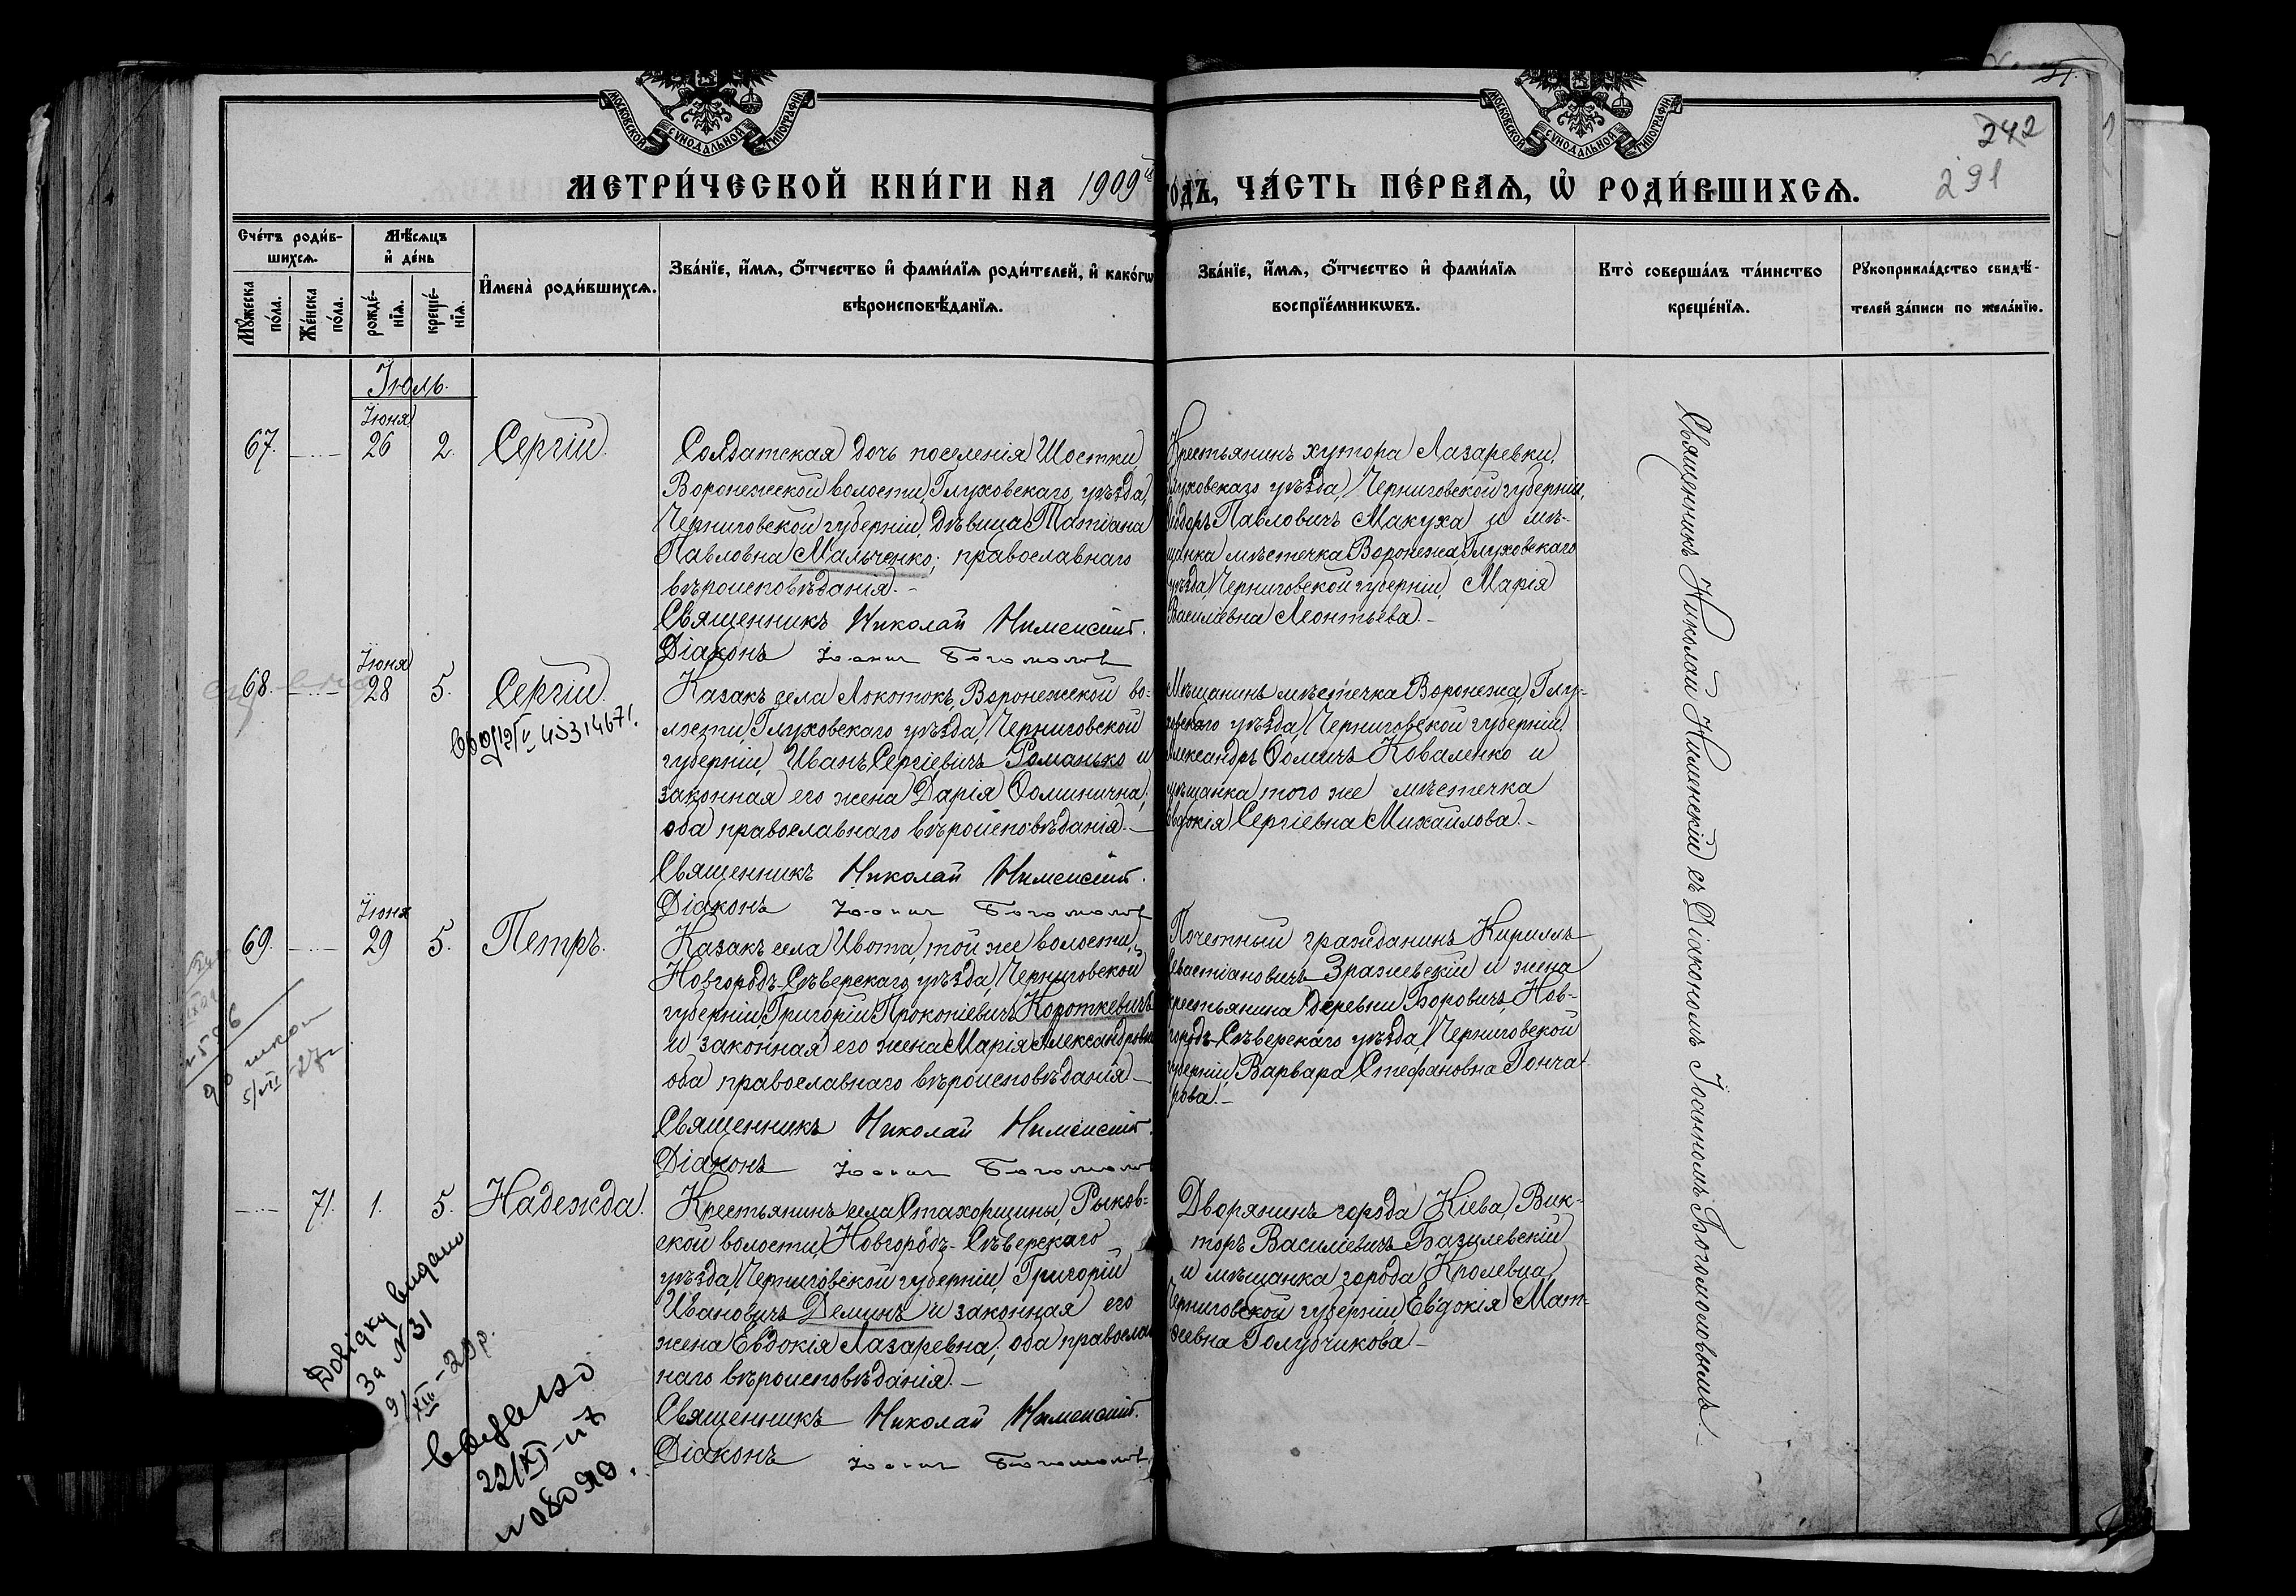 МОСКОВСКОЙ СѴНОДАЛЬНОЙ ТИПОГРАФІИ.
МОСКОВСКОЙ СѴНОДАЛЬНОЙ ТИПОГРАФІИ.
242
291
МЕТРИ́ЧЕСКОЙ КНИ́ГИ НА 1909й
го́дъ, ЧА́СТЬ ПЕ́РВАѦ, Ѡ҆ РОДИ́ВШИХСѦ.
Сче́тъ роди́в-
шихсѧ.
Мꙋ́жеска по́ла.
Же́нска по́ла.
Мѣ́сѧцъ
и҆ де́нь
рожде́-
нїѧ.
креще́-
нїѧ.
И҆мена̀ роди́вшихсѧ.
Зва́нїе, и҆́мѧ, ѻ҆́тчество и҆ фами́лїѧ роди́телей, и҆ како́гѡ
вѣроисповѣ́данїѧ.
Зва́нїе, и҆́мѧ, ѻ҆́тчество и҆ фами́лїѧ
воспрїе́мникѡвъ.
Кто̀ соверша́лъ та́инство
креще́нїѧ.
Рꙋкоприкла́дство свидѣ́-
телей за́писи по жела́нїю.
Іюль.
Іюня
67. 26 2. Сергій.
Солдатская дочь поселенія Шостки,
Воронежской волости, Глуховскаго уѣзда,
Черниговской губерніи, дѣвица Татіана
Павловна Мальченко; православнаго
вѣроисповѣданія.-
Священникъ Николай Нименскій.
Діаконъ Іоаннъ Богомоловъ
Крестьянинъ хутора Лазаревки,
Глуховскаго уѣзда, Черниговской губерніи,
Ѳеодоръ Павловичъ Макуха и мѣ-
щанка мѣстечка Воронежа, Глуховскаго
уѣзда, Черниговской губерніи, Марія
Василіевна Леонтьева.-
Іюня
68. 28 5. Сергій.
Казакъ села Локотокъ, Воронежской во-
лости, Глуховскаго уѣзда, Черниговской
губерніи, Иванъ Сергіевичъ Романько и
законная его жена Дарія Ѳоминична;
оба православнаго вѣроисповѣданія.-
Священникъ Николай Нименскій.
Діаконъ Іоаннъ Богомоловъ
Мѣщанинъ мѣстечка Воронежа, Глу-
ховскаго уѣзда, Черниговской губерніи,
Александръ Ѳомичъ Коваленко и
мѣщанка того же мѣстечка
Евдокія Сергіевна Михайлова.-
Іюня
69. 29 5. Петръ.
Казакъ села Ивота, той же волости,
Новгородъ-Сѣверскаго уѣзда, Черниговской
губерніи, Григорій Прокопіевичъ Короткевичъ
и законная его жена Марія Александровна
оба православнаго вѣроисповѣданія.-
Священникъ Николай Нименскій.
Діаконъ Іоаннъ Богомоловъ
Почетный гражданинъ Кириллъ
Севастіановичъ Зражевскій и жена
крестьянина деревни Боровичъ, Нов-
городъ-Сѣверскаго уѣзда, Черниговской
губерніи, Варвара Стефановна Гонча-
рова.-
71. 1. 5. Надежда.
Крестьянинъ села Стахорщины, Рыков-
ской волости, Новгородъ-Сѣверскаго
уѣзда, Черниговской губерніи, Григорій
Ивановичъ Деминъ и законная его
жена Евдокія Лазаревна; оба православ
наго вѣроисповѣданія.-
Священникъ Николай Нименскій.
Діаконъ Іоаннъ Богомоловъ
Дворянинъ города Кіева, Вик-
торъ Василіевичъ Базилевскій
и мѣщанка города Кролевца,
Черниговской губерніи, Евдокія Мат-
ѳеевна Голубчикова.-
Священникъ Николай Нименскій съ Діакономъ Іоанномъ Богомоловымъ.-
Довідку видано
За N 31
9/XII-29р.
видано